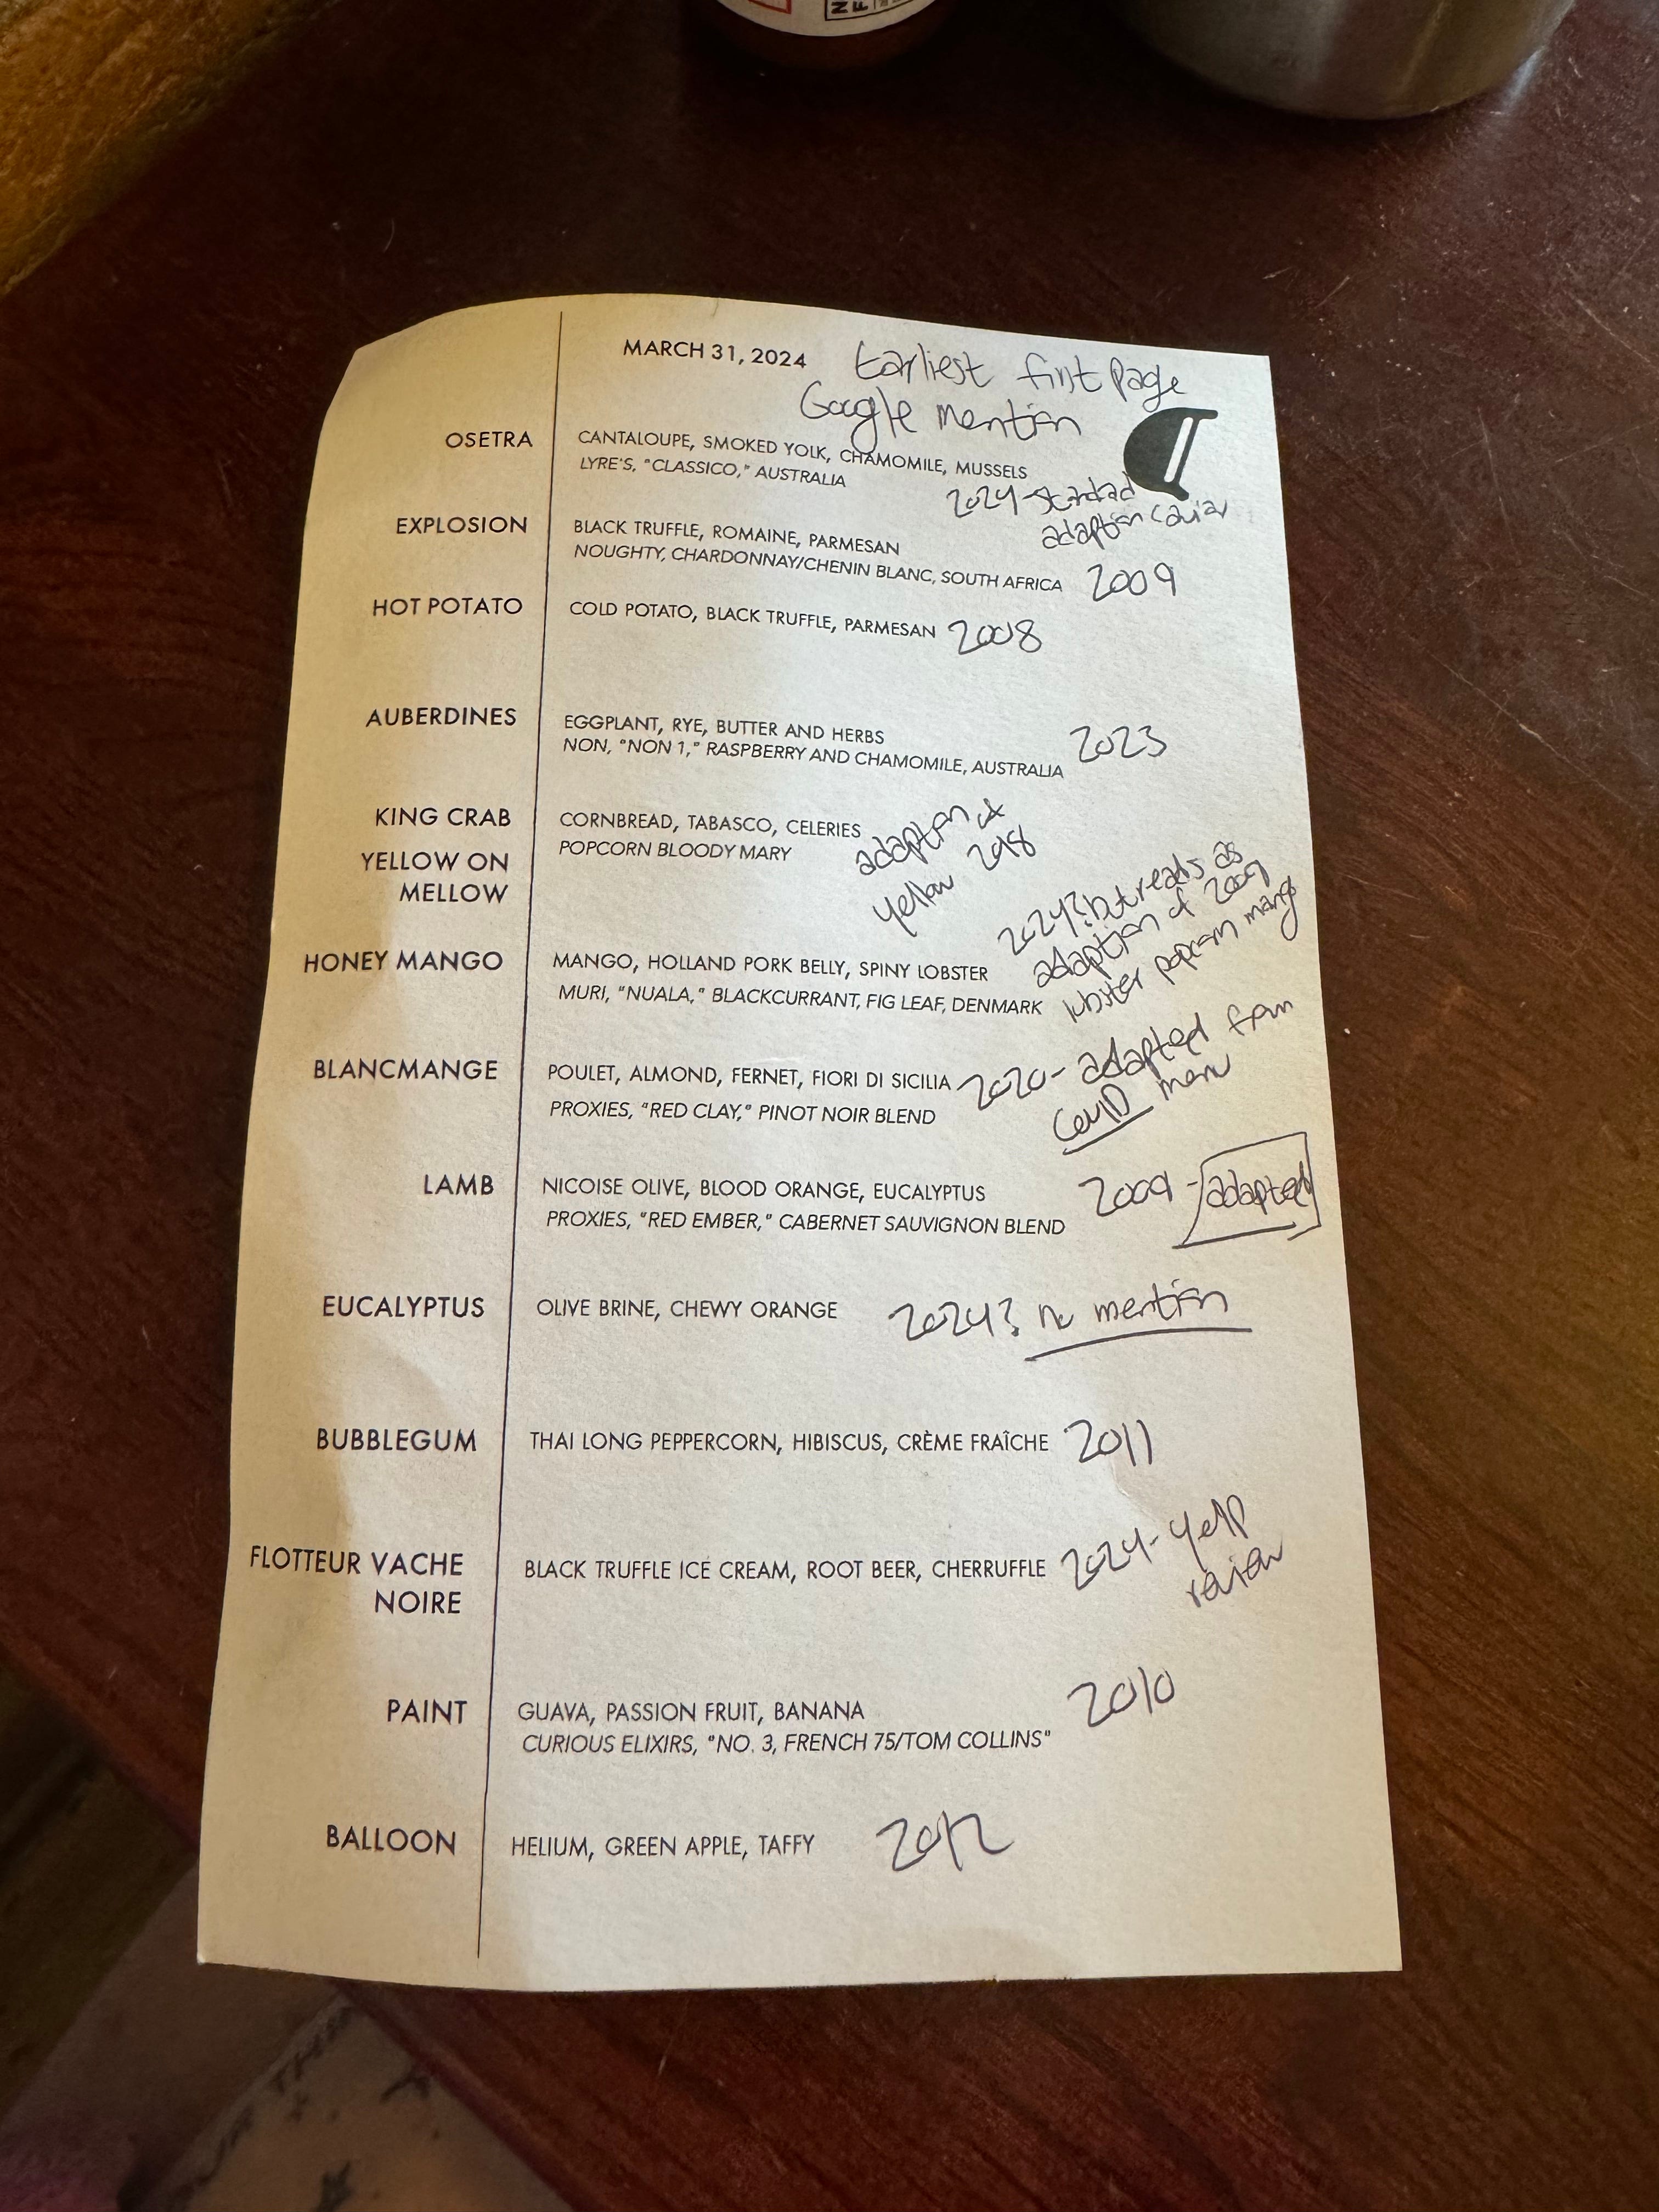 MARCH 31, 2024 Earliest first page
Google mention
OSETRA CANTALOUPE, SMOKED YOLK, CHAMOMILE, MUSSELS
LYRE'S, "CLASSICO," AUSTRALIA
2024-standard
adaption caviar
EXPLOSION BLACK TRUFFLE, ROMAINE, PARMESAN
NOUGHTY, CHARDONNAY/CHENIN BLANC, SOUTH AFRICA 2009
HOT POTATO COLD POTATO, BLACK TRUFFLE, PARMESAN 2008
AUBERDINES EGGPLANT, RYE, BUTTER AND HERBS
NON, "NON 1," RASPBERRY AND CHAMOMILE, AUSTRALIA 2023
KING CRAB CORNBREAD, TABASCO, CELERIES
POPCORN BLOODY MARY
adaption of
yellow 2018
YELLOW ON
MELLOW
2024? but reads as
adaption of 2009
lobster popcorn mango
HONEY MANGO MANGO, HOLLAND PORK BELLY, SPINY LOBSTER
MURI, "NUALA," BLACKCURRANT, FIG LEAF, DENMARK
BLANCMANGE POULET, ALMOND, FERNET, FIORI DI SICILIA 2020- adapted from
COVID menu
PROXIES, "RED CLAY," PINOT NOIR BLEND
LAMB NICOISE OLIVE, BLOOD ORANGE, EUCALYPTUS 2009 - adapted
PROXIES, "RED EMBER," CABERNET SAUVIGNON BLEND
EUCALYPTUS OLIVE BRINE, CHEWY ORANGE 2024? no mention
BUBBLEGUM THAI LONG PEPPERCORN, HIBISCUS, CRÈME FRAÎCHE 2011
FLOTTEUR VACHE
NOIRE
BLACK TRUFFLE ICE CREAM, ROOT BEER, CHERRUFFLE 2024- yelp
review
PAINT GUAVA, PASSION FRUIT, BANANA 2010
CURIOUS ELIXIRS, "NO. 3, FRENCH 75/TOM COLLINS"
BALLOON HELIUM, GREEN APPLE, TAFFY 2012